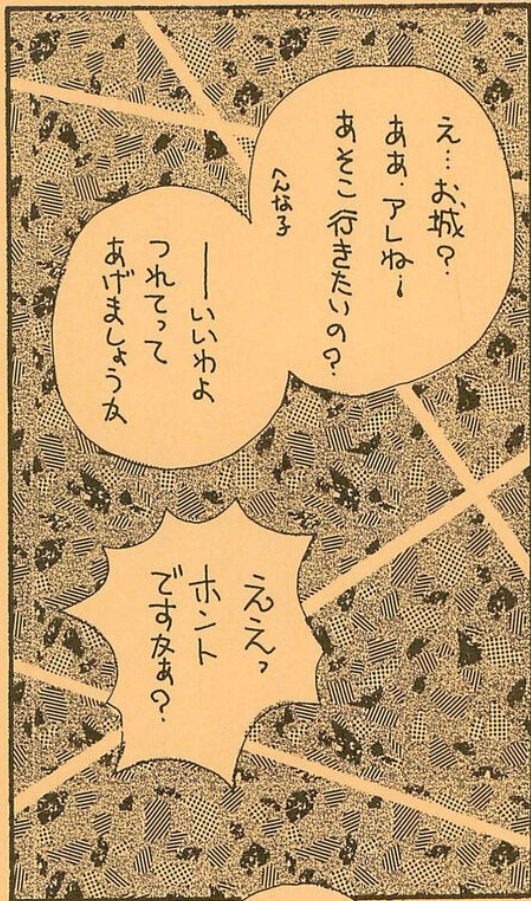 え…お城?
ああ、アレね!
あそこ行きたいの?
へんな子
―いいわよ
つれてって
あげましょうか
ええっ
ホント
ですかぁ?